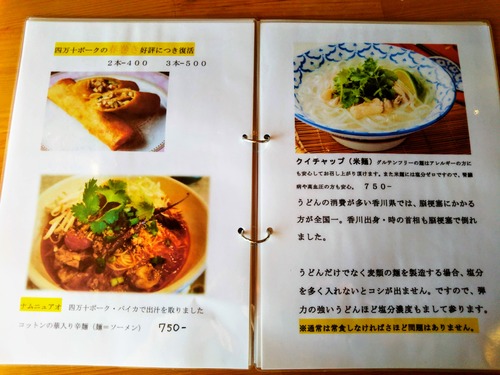 四万十ポークの春巻き好評につき復活
２本-４００　３本-５００
ナムニュアオ　四万十ポーク・パイカで出汁を取りました
コットンの華入り辛麺（麺＝ソーメン）　750-
クイチャップ（米麺）グルテンフリーの麺はアレルギーの方に
も安心してお召し上がり頂けます。また米麺には塩分ゼロですので、腎臓
病や高血圧の方も安心。　７５０-
うどんの消費が多い香川県では、脳梗塞にかかる
方が全国一。香川出身・時の首相も脳梗塞で倒れ
ました。
うどんだけでなく麦類の麺を製造する場合、塩分
を多く入れないとコシが出ません。ですので、弾
力の強いうどんほど塩分濃度もまして参ります。
※通常は常食しなければさほど問題はありません。